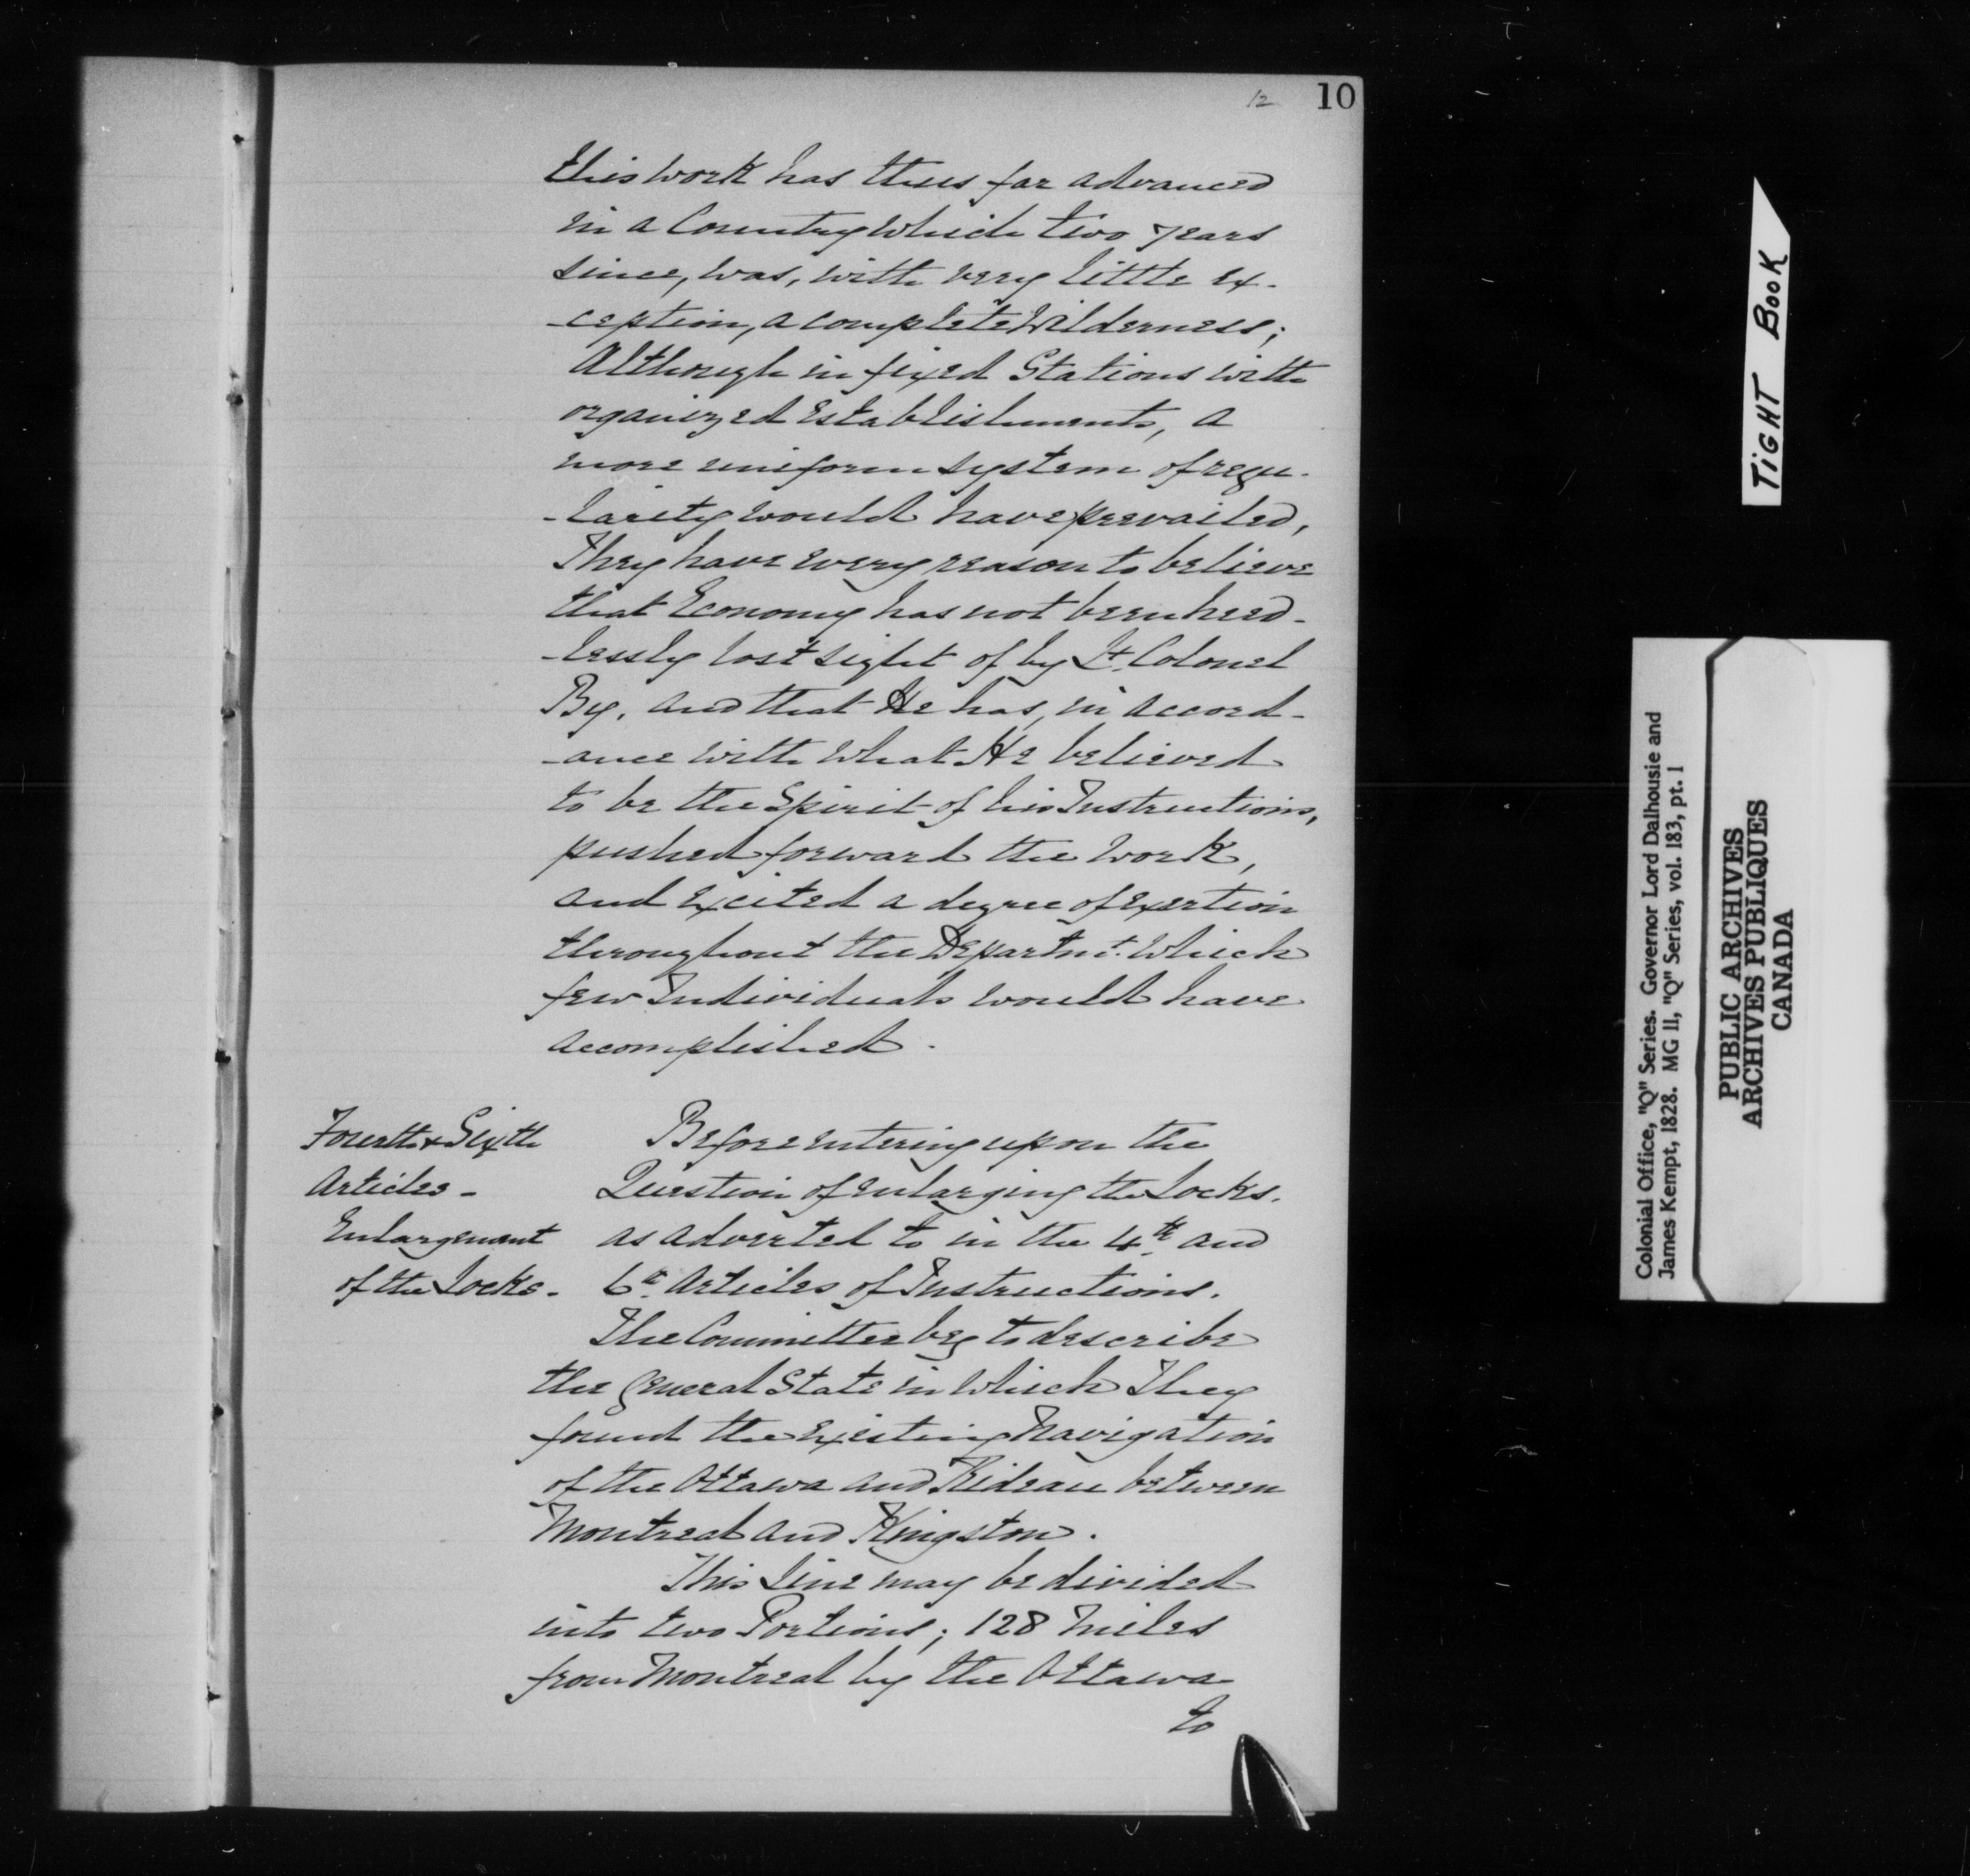 12 10
this work has thus far advanced
in a Country which two years
since, was, with very little ex-
-ception, a complete Wilderness;
Although in fixed Stations with
organized Establishments, a
more uniform system of regu-
-larity would have prevailed,
They have every reason to believe
that Economy has not been heed-
-lessly lost sight of by Lt. Colonel
By, and that He has, in accord-
-ance with what He believed
to be the Spirit of his Instructions,
pushed forward the Work,
and excited a degree of exertion
throughout the Departmt. which
few Individuals would have
accomplished.
Fourth & Sixth
Articles -
Enlargement
of the Locks -
Before entering upon the
Question of enlarging the Locks,
as adverted to in the 4th. and
6th. Articles of Instructions.
The Committee beg to describe
the General State in which They
found the existing Navigation
of the Ottawa and Rideau between
Montreal and Kingston.
This Line may be divided
into two Portions; 128 Miles
from Montreal by the Ottawa
to
TIGHT BOOK
Colonial Office, "Q" Series. Governor Lord Dalhousie and
James Kempt, 1828. MG 11, "Q" Series, vol. 183, pt. 1
PUBLIC ARCHIVES
ARCHIVES PUBLIQUES
CANADA